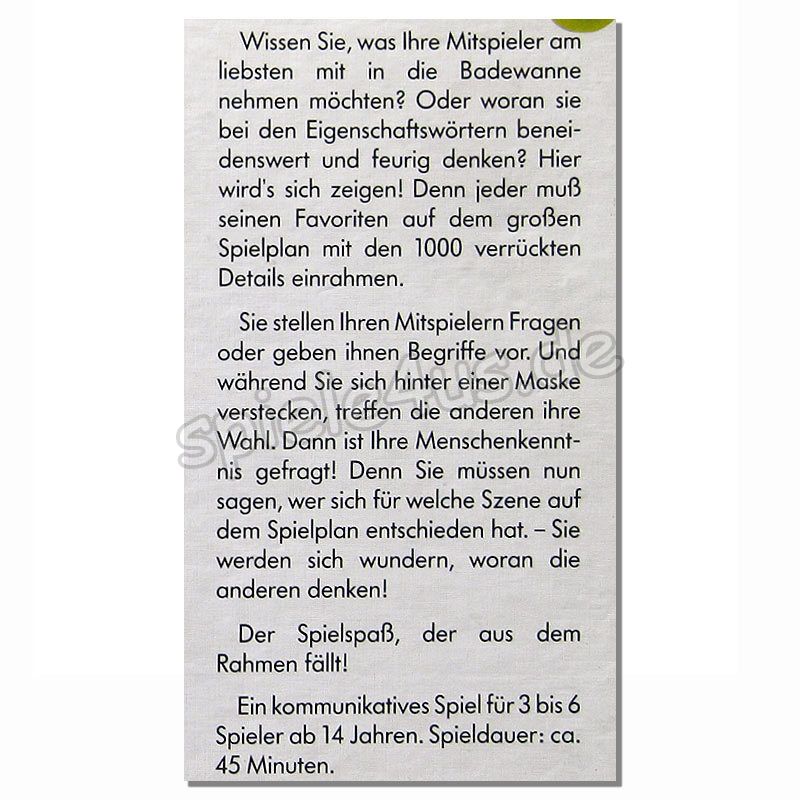 Wissen Sie, was Ihre Mitspieler am
liebsten mit in die Badewanne
nehmen möchten? Oder woran sie
bei den Eigenschaftswörtern benei-
denswert und feurig denken? Hier
wird's sich zeigen! Denn jeder muß
seinen Favoriten auf dem großen
Spielplan mit den 1000 verrückten
Details einrahmen.
Sie stellen Ihren Mitspielern Fragen
oder geben ihnen Begriffe vor. Und
während Sie sich hinter einer Maske
verstecken, treffen die anderen ihre
Wahl. Dann ist Ihre Menschenkennt-
nis gefragt! Denn Sie müssen nun
sagen, wer sich für welche Szene auf
dem Spielplan entschieden hat. – Sie
werden sich wundern, woran die
anderen denken!
Der Spielspaß, der aus dem
Rahmen fällt!
Ein kommunikatives Spiel für 3 bis 6
Spieler ab 14 Jahren. Spieldauer: ca.
45 Minuten.
spiele4us.de